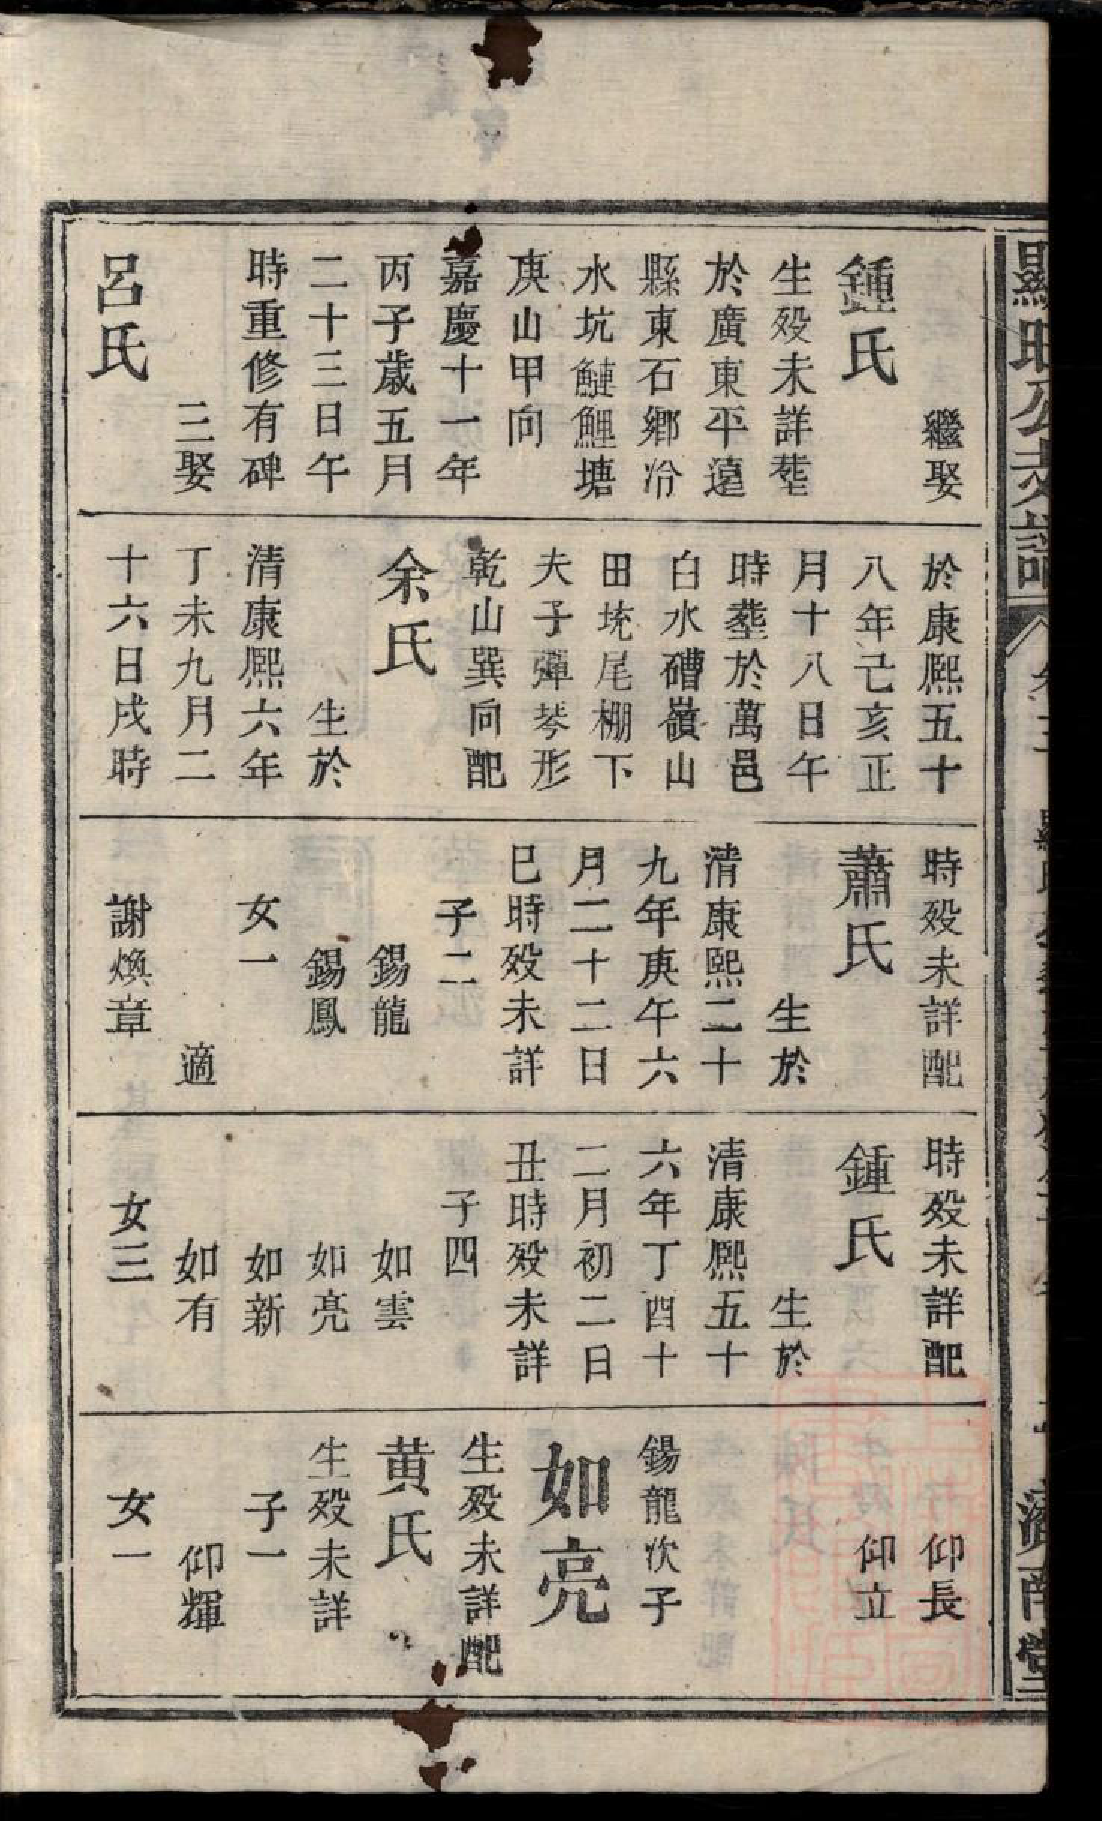 繼娶
鍾氏
生殁未詳塟
於廣東平遠
縣東石鄉冷
水坑鰱鯉塘
庚山甲向
嘉慶十一年
丙子歲五月
二十三日午
時重修有碑
三娶
呂氏
於康熙五十
八年己亥正
月十八日午
時塟於萬邑
白水磹嶺山
田垅尾棚下
夫子彈琴形
乾山巽向配
余氏
生於
清康熙六年
丁未九月二
十六日戌時
時殁未詳配
蕭氏
生於
清康熙二十
九年庚午六
月二十二日
巳時殁未詳
子二
錫龍
錫鳳
女一
適
謝煥章
時殁未詳配
鍾氏
生於
清康熙五十
六年丁酉十
二月初二日
丑時殁未詳
子四
如雲
如亮
如新
如有
女三
仰長
仰立
錫龍次子
如亮
生殁未詳配
黄氏
生殁未詳
子一
仰輝
女一